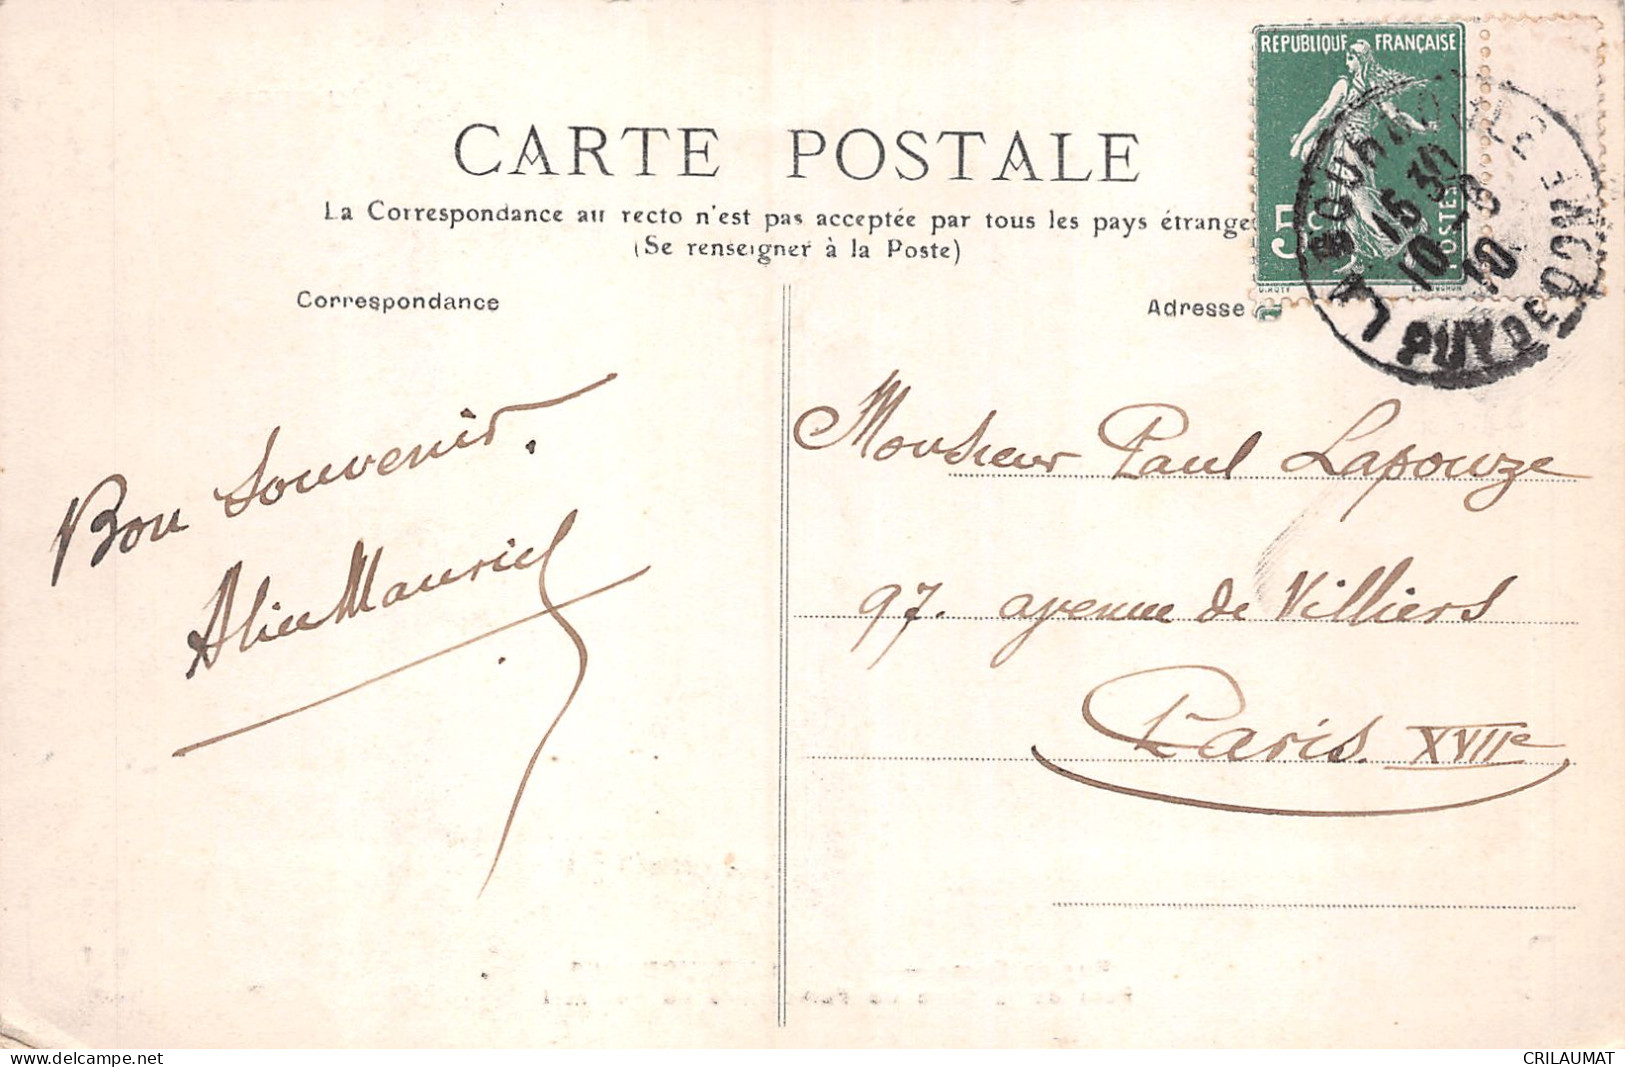 CARTE POSTALE
La Correspondance au recto n'est pas acceptée par tous les pays étrange
(Se renseigner à la Poste)
Correspondance
Adresse
RÉPUBLIQUE FRANÇAISE
5c
POSTES
LA BOURBOULE
15 30
10 -8
10
PUY DE DOME
Bon Souvenir.
Alice Mauriel
Monsieur Paul Lapouze
97. avenue de Villiers
Paris. XVIIe
www.delcampe.net
CRILAUMAT